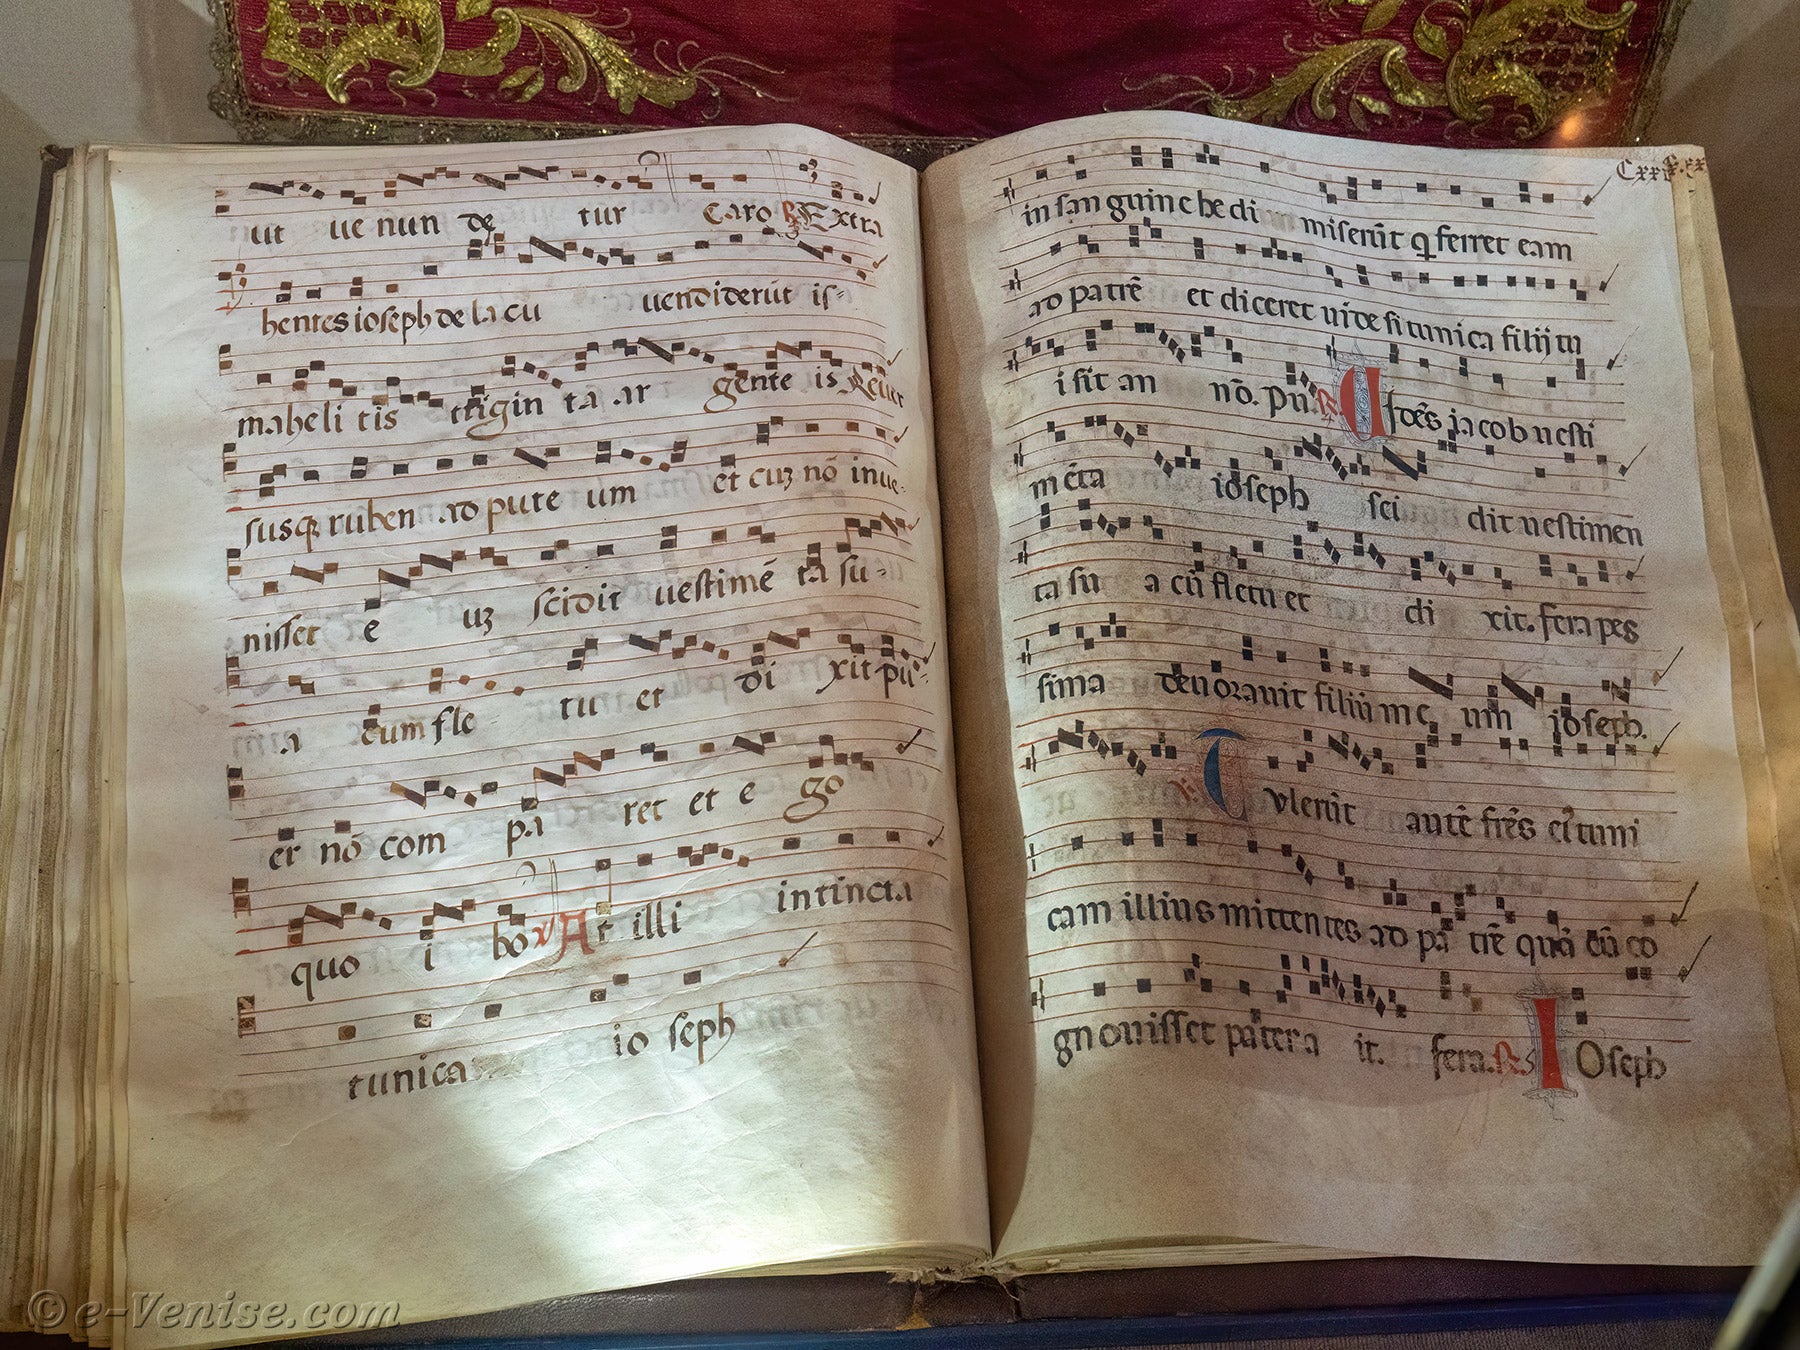 ut ue nun de tur Caro ℟ Extra
hentes ioseph de la cu uendiderūt is-
maheli tis trigin ta ar gente is Reuer
susqȝ ruben ad pute um et cuȝ nō inue-
nisset e uȝ scidit uestimē ta su-
a cum fle tu et di xit pu-
er nō com pa ret et e go
quo i bo ℣ At illi intincta
tunica io seph
Cxxix
in san guine he di miserūt q ferret eam
ad patrē et diceret uide si tunica filij tu
i sit an nō. pu. ℟ Uidēs jacob uesti
mēta ioseph sci dit uestimen
ta su a cū fletu et di xit. fera pes
sima deuorauit filiū me um ioseph.
℣. Tulerūt autē frēs ei tuni
cam illius mittentes ad pa trē quā cū co
gnouisset pater a it. fera. ℟ IOseph
© e-Venise.com